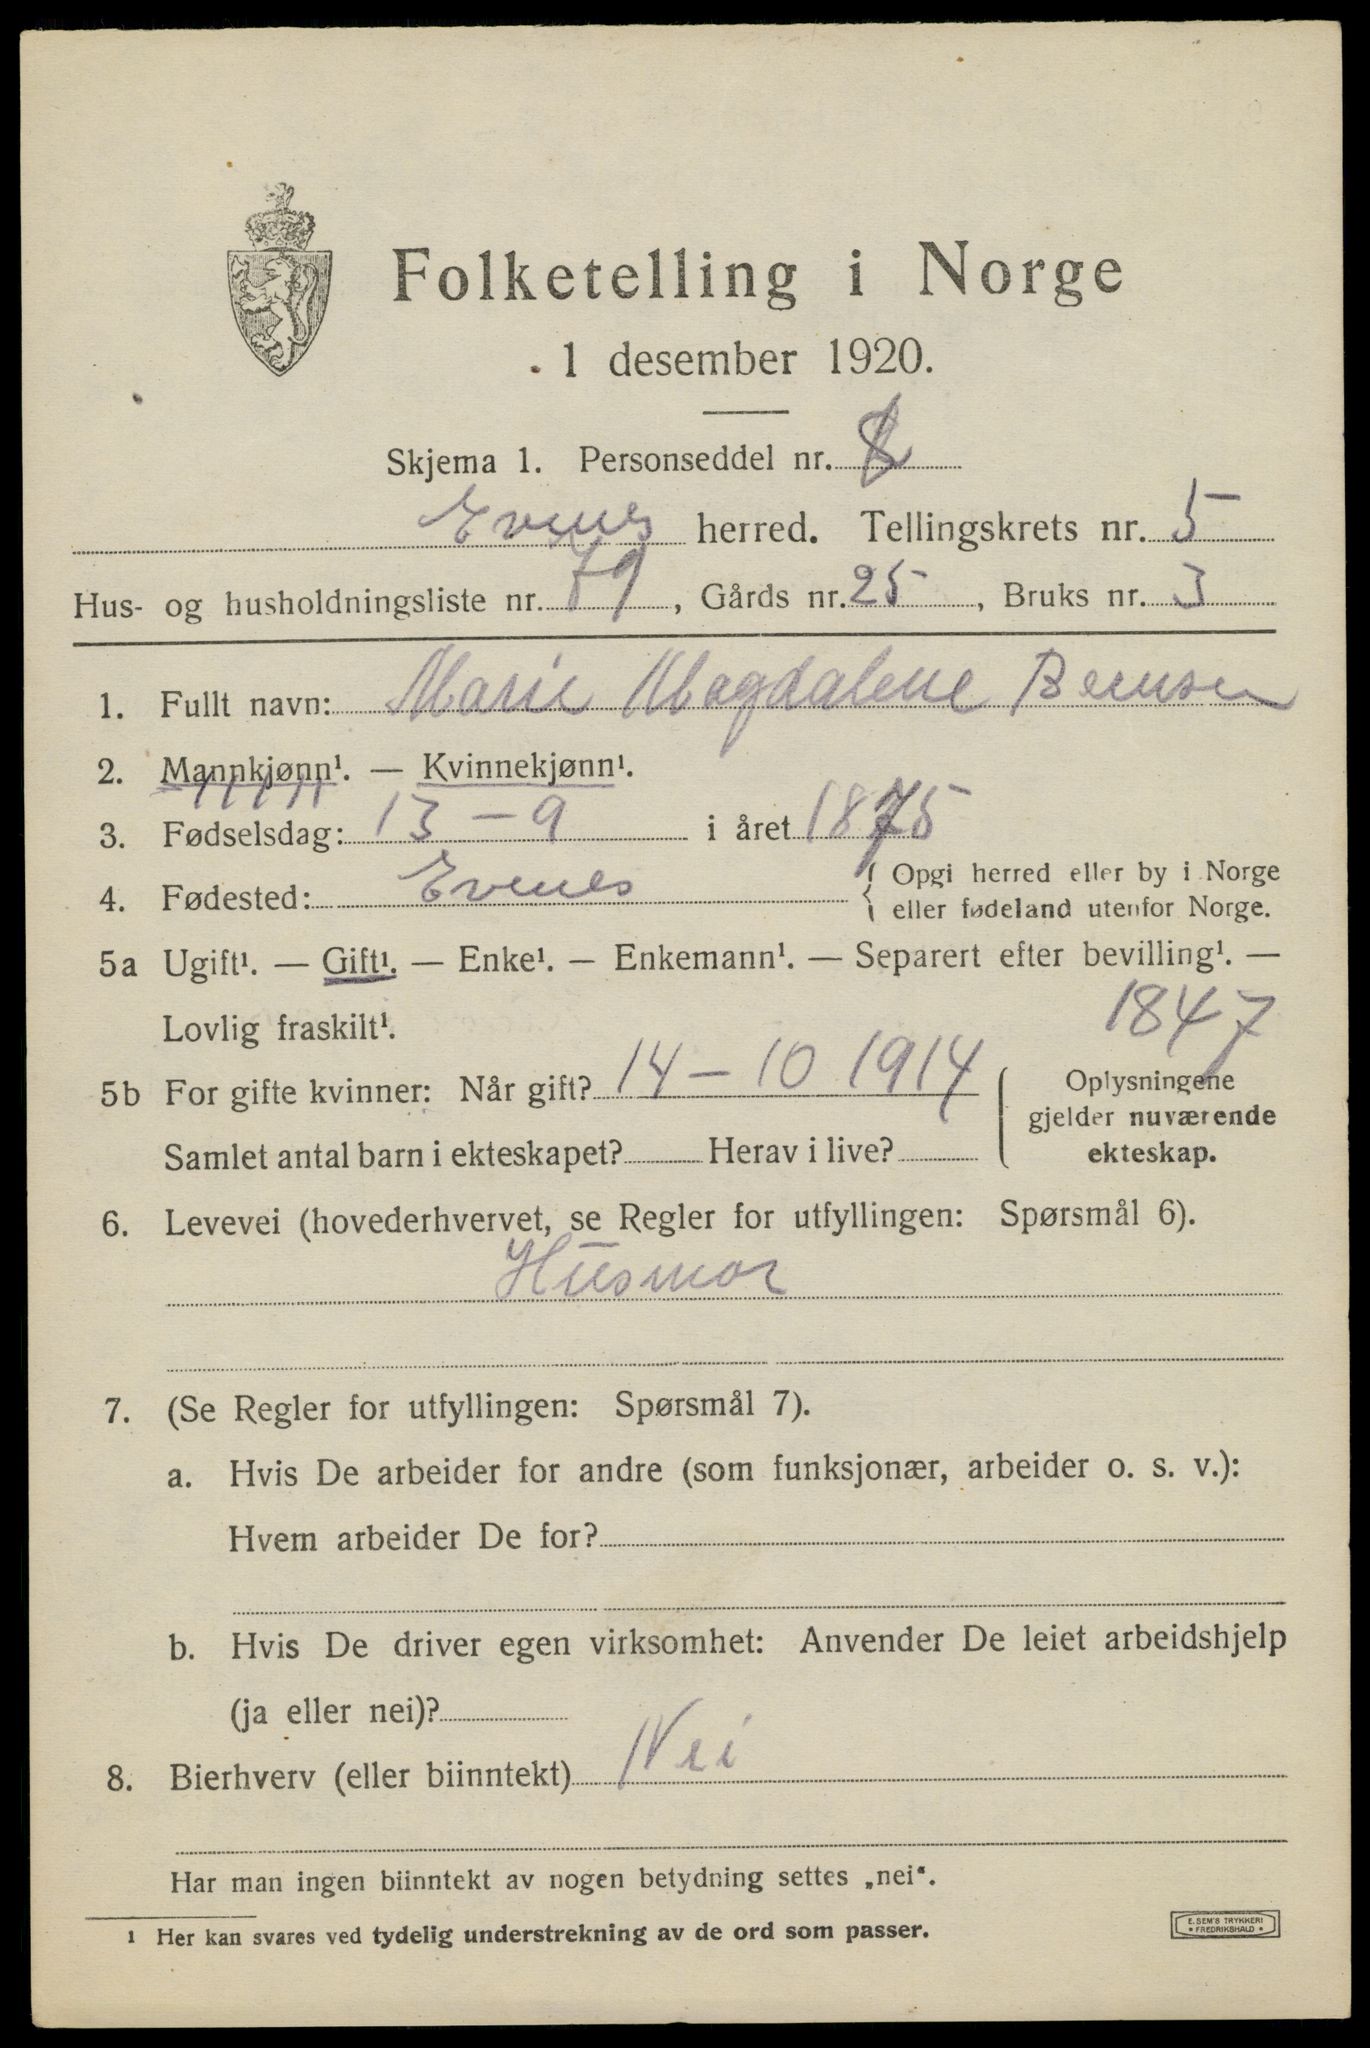 Folketelling i Norge
1 desember 1920.
Skjema 1. Personseddel nr.
Evenes herred. Tellingskrets nr. 5
Hus- og husholdningsliste nr. 79, Gårds nr. 25, Bruks nr. 3
1. Fullt navn: Marie Magdalene
2. Mannkjønn¹. — Kvinnekjønn¹.
3. Fødselsdag: 13 - 9 i året 1875
4. Fødested: Evenes { Opgi herred eller by i Norge
eller fødeland utenfor Norge.
5a Ugift¹. — Gift¹. — Enke¹. — Enkemann¹. — Separert efter bevilling¹. —
Lovlig fraskilt¹.
1847
5b For gifte kvinner: Når gift? 14 - 10 1914 ( Oplysningene
gjelder nuværende
Samlet antal barn i ekteskapet? Herav i live? ekteskap.
6. Levevei (hovederhvervet, se Regler for utfyllingen: Spørsmål 6).
Husmor
7. (Se Regler for utfyllingen: Spørsmål 7).
a. Hvis De arbeider for andre (som funksjonær, arbeider o. s. v.):
Hvem arbeider De for?
b. Hvis De driver egen virksomhet: Anvender De leiet arbeidshjelp
(ja eller nei)?
8. Bierhverv (eller biinntekt) Nei
Har man ingen biinntekt av nogen betydning settes „nei“.
¹ Her kan svares ved tydelig understrekning av de ord som passer.
E. SEM'S TRYKKERI
• FREDRIKSHALD •